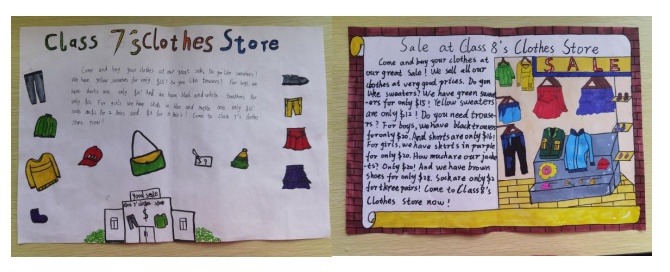 Class 7's Clothes Store
Come and buy your clothes at our great sale. Do you like sweaters?
We have yellow sweaters for only $15! Do you like trousers? For boys, we
have shorts are only $10! And we have black and white trousers for
only For girls, we have skirts in blue and purple are only $20!
socks only $2 for Come to Class 7's clothes
store now!
$9
good sale
class 7 clothes store
$
Sale at Class 8's Clothes Store
Come and buy your clothes at
our great Sale! We sell all our
clothes at very good prices. Do you
like sweaters? We have green sweat-
ers for only $15! Yellow sweaters
are only $12! Do you need trouse-
rs? For boys, we have black trousers
for only $20. And shorts are only $16!
For girls, we have skirts in purple
for only $20. How much are our jacke-
ts? Only $20! And we have brown
shoes for only $28. Socks are only $2
for three pairs! Come to Class 8's
Clothes store now!
SALE